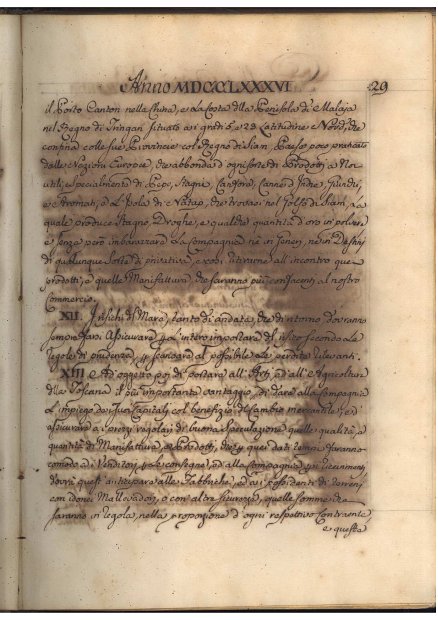 Anno MDCCLXXXVI 29
il Porto Canton nella China, e la Costa della Penisola di Malaja
nel Regno di Tringan situato a i gradi 5 e 28 Latitudine Nord, che
confina colle sue Provincie col Regno di Siam, Paese poco praticato
dalle Nazioni Europee, che abbonda d'ogni sorte di Prodotti a Noi
utili, e specialmente di Pepe, Stagni, Canfora, Canne d'Indie,
e Aromati, ed l'Isola di nel Golfo di Siam, la
quale produce Stagno, Droghe, e qualche quantità d'oro in polvere
e senza però imbarazzare la Compagnia nè in nè in
di qualunque sorte di privativa, e così ritirarne all'incontro quei
prodotti, e quelle Manifatture che saranno più confacenti al nostro
Commercio.
XII. I rischi di Mare, tanto di andata, che di ritorno dovranno
sempre farsi Assicurare per l'intero importare del risico secondo le
regole di prudenza, per scansare al possibile le perdite rilevanti.
XIII E ad oggetto poi di portare all'Arti, ed all'Agricoltura
della Toscana il più importante vantaggio, di dare alla Compagnia
l'impiego de suoi Capitali col benefizio del Cambio mercantile, ed
assicurare a i prezzi regolari di buona speculazione quelle qualità, e
quantità di Manifatture, e Prodotti, che in quei dati tempi faranno
comodo a i Venditori per le consegne, ed alla Compagnia per i ricevimenti,
dovrà quest'anticipare alle Fabbriche, ed a i possidenti di terreni
con idonei Mallevadori, o con altre sicurezze, quelle somme che
saranno in regola, nella proporzione d'ogni respettivo Contraente
e questa